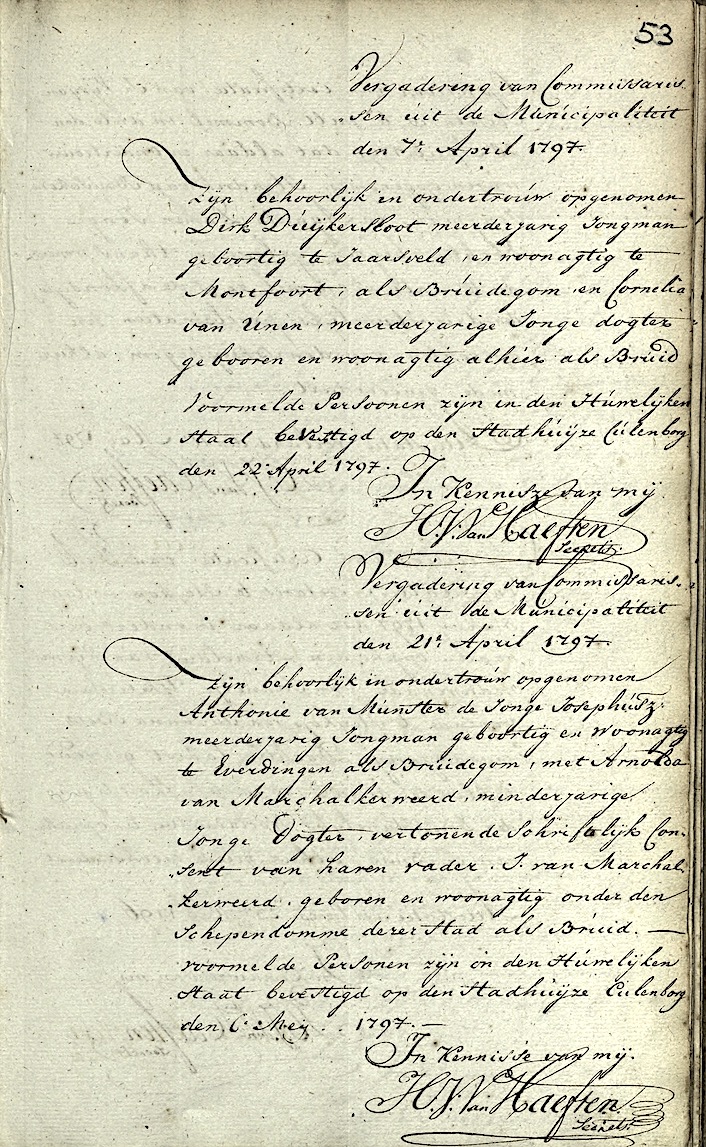 53
Vergadering van Commissaris
sen uit de Municipaliteit
den 7e April 1797.
Zijn behoorlijk in ondertrouw opgenomen
Dirk Duijkersloot meerderjarig Jongman
geboortig te Jaarsveld, en woonagtig te
Montfoort, als Bruidegom, en Cornelia
van Unen, meerderjarige Jonge dogter
gebooren en woonagtig alhier als Bruid
Voormelde Persoonen zijn in den Huwelijken
Staat bevestigd op den Stadhuijze Culenborg
den 22 April 1797.
In Kennisze van mij
H.J. Van Haeften
Secrets.
Vergadering van Commissaris-
sen uit de Municipaliteit
den 21e April 1797.
Zijn behoorlijk in ondertrouw opgenomen
Anthonie van Munster de Jonge Josephusz:
meerderjarig Jongman geboortig en Woonagtig
te Everdingen als Bruidegom, met Arnolda
van Marchalkerweerd, minderjarige
Jonge Dogter, vertonende Schriftelijk Con-
sent van haren vader J. van Marchal-
kerweerd. geboren en woonagtig onder den
Schependomme dezer Stad als Bruid. —
voormelde Personen zijn in den Huwelijken
Staat bevestigd op den Stadhuijze Culenborg
den 6 Meij .. 1797. —
In Kennisse van mij.
H.J. Van Haeften
Secrets.